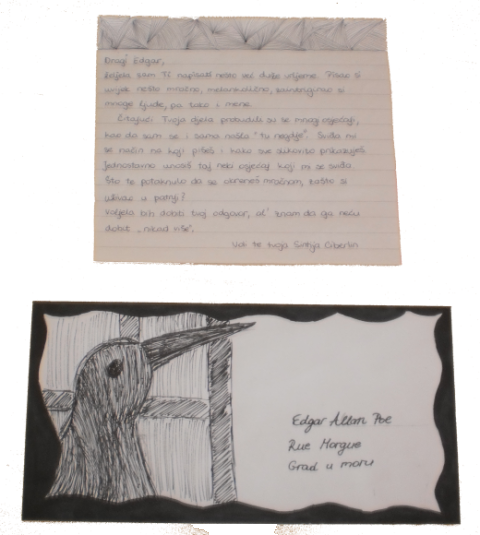 Dragi Edgar,
željela sam Ti napisati nešto već dulje vrijeme. Pisao si
uvijek nešto mračno, melankolično, zaintrigirao si
mnoge ljude, pa tako i mene.
Čitajući Tvoja djela probudili su se mnogi osjećaji,
kao da sam se i sama našla "tu negdje". Sviđa mi
se način na koji pišeš i kako sve slikovito prikazuješ
jednostavno unosiš taj neki osjećaj koji mi se sviđa.
Što te potaknulo da se okreneš mračnom, zašto si
uživao u patnji?
Voljela bih dobiti tvoj odgovor, al' znam da ga neću
dobiti „nikad više".
Voli te tvoja Sintija Ciberlin
Edgar Allan Poe
Rue Morgue
Grad u moru